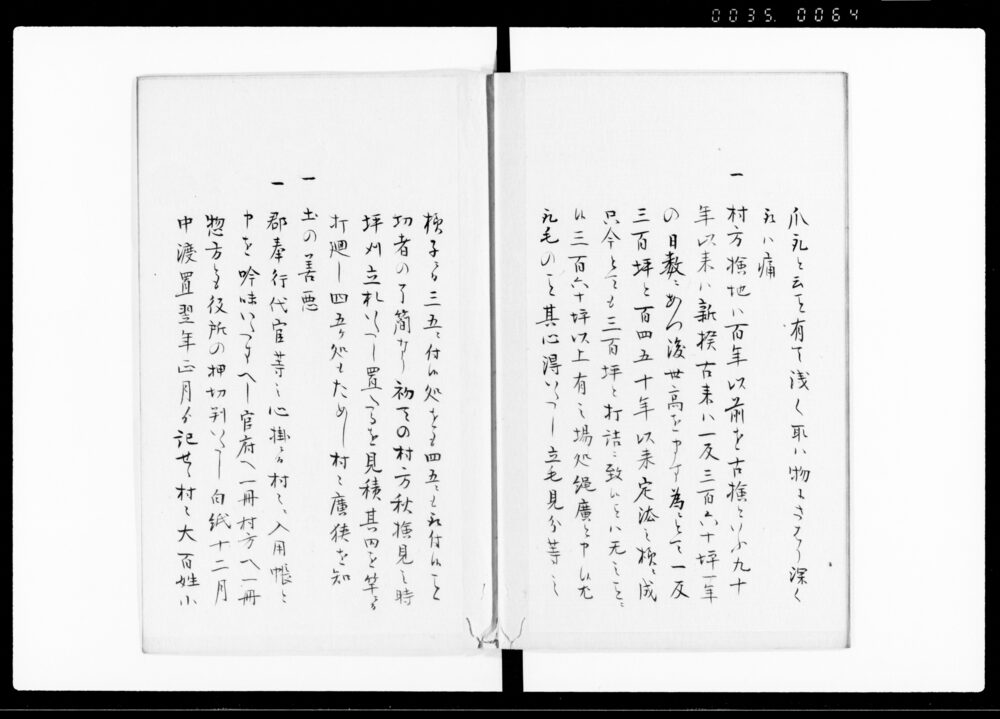 0035.0064
爪礼と云を有て浅く取ハ物にさはらす深く
取ハ痛
一
村方検地ハ百年以前を古検といふ九十
年以来ハ新検古来ハ一反三百六十坪一年
の日数にあて後世高を申す為にとて一反
三百坪と百四五十年以来定法之様ニ成
只今とても三百坪と打詰ニ致候とハ无之ことニ
候三百六十坪以上有之場処縄廣と申候尤
礼毛のこと其心得いたし立毛見分等之
様子ニより三五ニ付候処をも四五ニも礼付候こと
功者の了簡なり初ての村方秋検見之時
坪刈立札いたし置たるを見積其内を竿にて
打廻し四五ヶ処もためし村之廣狭を知
一
土の善悪
一
郡奉行代官等之心掛にて村々入用帳と
申を吟味いたすへし官府へ一冊村方へ一冊
惣方とも役所の押切判いたし白紙十二月
中渡置翌年正月より記せ村々大百姓小